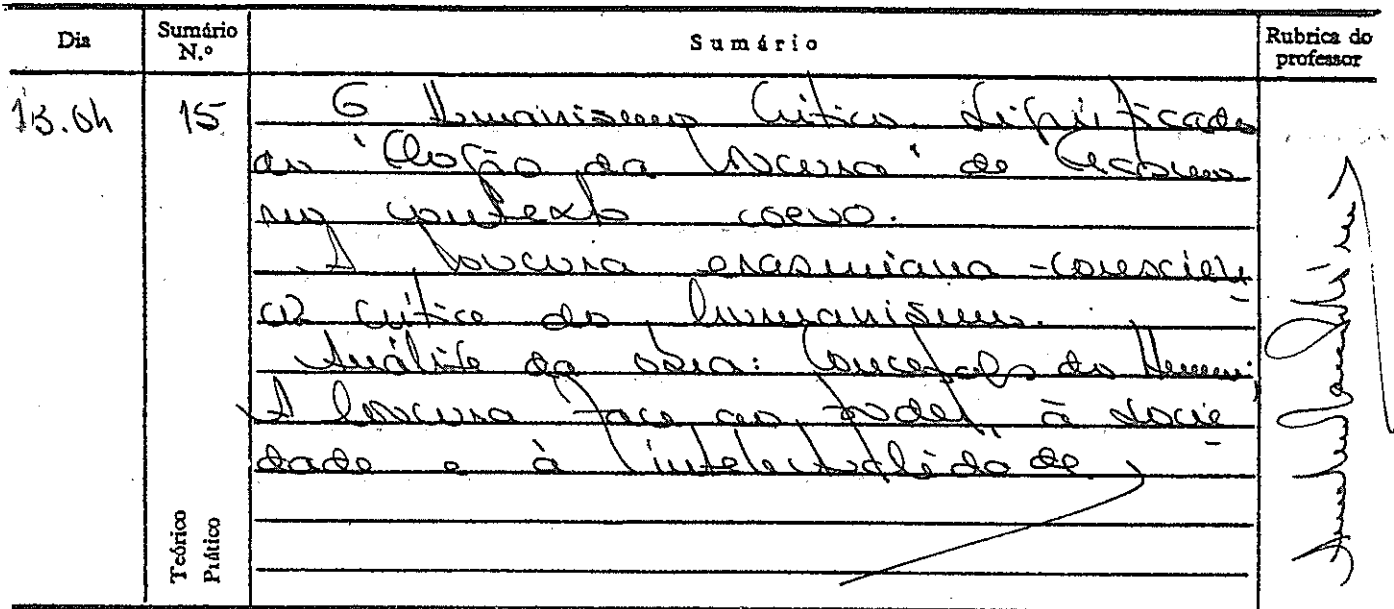 Dia
Sumário N.º
Sumário
Rubrica do professor
13.04
15
O Humanismo Crítico. Significado
do "Elogio da Loucura" de Erasmo
no contexto coevo.
A loucura erasmiana - consciên
cia crítica do humanismo.
Análise da obra: Concepção do Homem.
A loucura face ao poder, à socie
dade e à intelectualidade.
Teórico
Prático